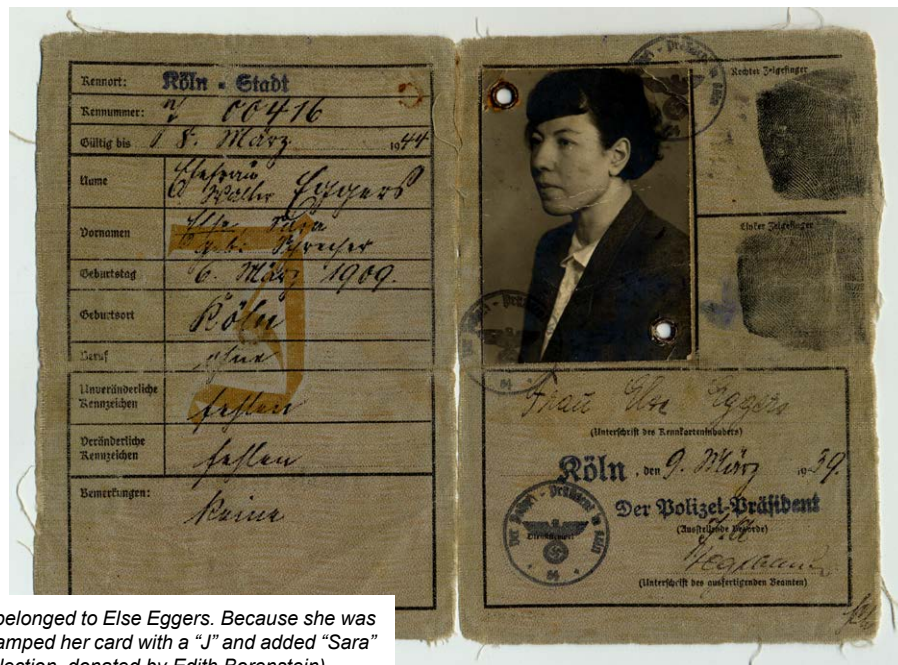 Kennort: Köln - Stadt
Kennummer: J 00416
Gültig bis 8. März 1944
Name Ehefrau
Walter Eggers
Vornamen Else, Sara
geb. Schrecher
Geburtstag 6. März 1909.
Geburtsort Köln
Beruf ohne
Unveränderliche
Kennzeichen fehlen
Veränderliche
Kennzeichen fehlen
Bemerkungen: Keine
Rechter Zeigefinger
Linker Zeigefinger
Frau Else Eggers
(Unterschrift des Kennkarteninhabers)
Köln, den 9. März 1939.
Der Polizei-Präsident
(Ausstellende Behörde)
(Unterschrift des ausfertigenden Beamten)
Der Polizei-Präsident in Köln
64
belonged to Else Eggers. Because she was
amped her card with a “J” and added “Sara”
llection, donated by Edith Berenstein)